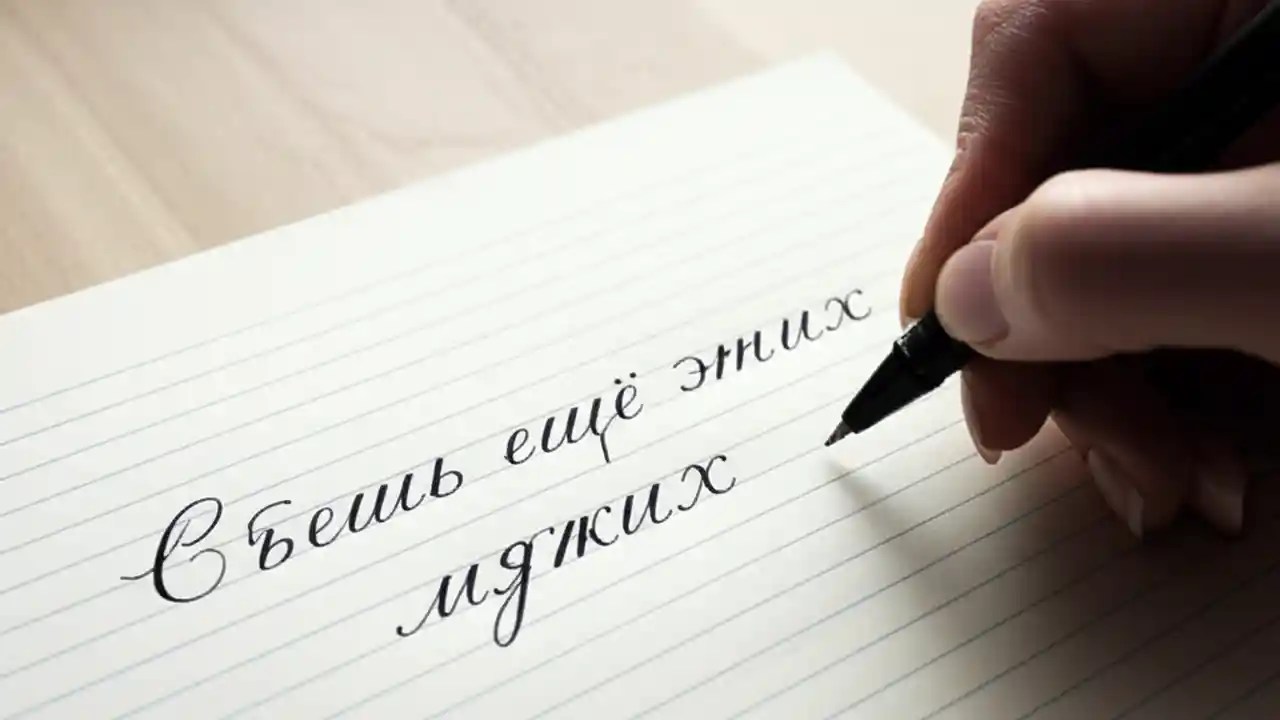 Съешь ещё этих
мджих